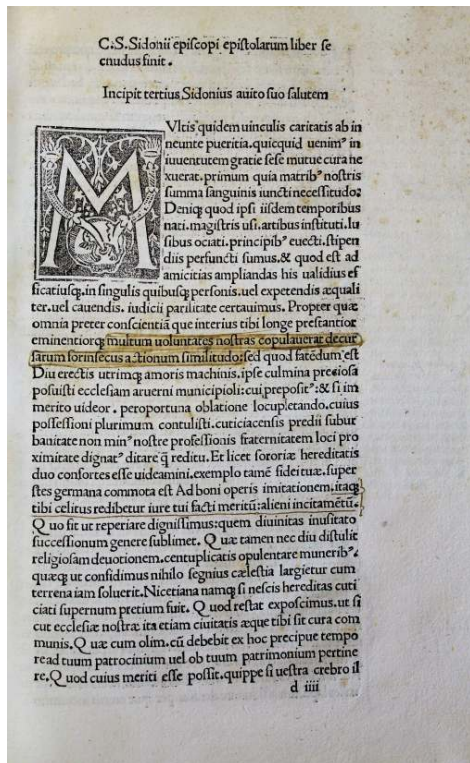 C.S.Sidonii episcopi epistolarum liber se
cnudus finit.
Incipit tertius Sidonius auito suo salutem
MVltis quidem uinculis caritatis ab in
neunte pueritia. quicquid uenimꝰ in
iuuentutem gratie sese mutue cura ne
xuerat. primum quia matribꝰ nostris
summa sanguinis iuncti necessitudo:
Deniqꝫ quod ipsi iisdem temporibus
nati. magistris usi. artibus instituti. lu
sibus ociati. principibꝰ euecti. stipen
diis perfuncti sumus. & quod est ad
amicitias ampliandas his ualidius ef
ficatiusqꝫ. in singulis quibusqꝫ personis. uel expetendis æquali
ter. uel cauendis. iudicii parilitate certauimus. Propter quæ
omnia preter conscientiā que interius tibi longe prestantior
eminentiorqꝫ multum uoluntates nostras copulauerat decur
sarum forinsecus actionum similitudo: sed quod fatēdum est
Diu erectis utrimqꝫ amoris machinis. ipse culmina preciosa
posuisti ecclesiam aruerni municipioli: cui prepositꝰ: & si im
merito uideor. peroportuna oblatione locupletando. cuius
possessioni plurimum contulisti. cuticiacensis predii subur
banitate non minꝰ nostre professionis fraternitatem loci pro
ximitate dignatꝰ ditare ꝙ reditu. Et licet sororiæ hereditatis
duo consortes esse uideamini. exemplo tamē fidei tuæ. super
stes germana commota est Ad boni operis imitationem. itaqꝫ
tibi celitus redibetur iure tui facti meritū: alieni incitamētū.
Quo fit ut reperiare dignissimus: quem diuinitas inusitato
successionum genere sublimet. Quæ tamen nec diu distulit
religiosam deuotionem. centuplicatis opulentare muneribꝰ.
quæqꝫ ut confidimus nihilo segnius cælestia largietur cum
terrena iam soluerit. Nicetiana namqꝫ si nescis hereditas cuti
ciati supernum pretium fuit. Quod restat exposcimus. ut si
cut ecclesiæ nostræ ita etiam ciuitatis æque tibi sit cura com
munis. Quæ cum olim. cū debebit ex hoc precipue tempo
re ad tuum patrocinium uel ob tuum patrimonium pertine
re. Quod cuius meriti esse possit. quippe si uestra crebro il
d iiii